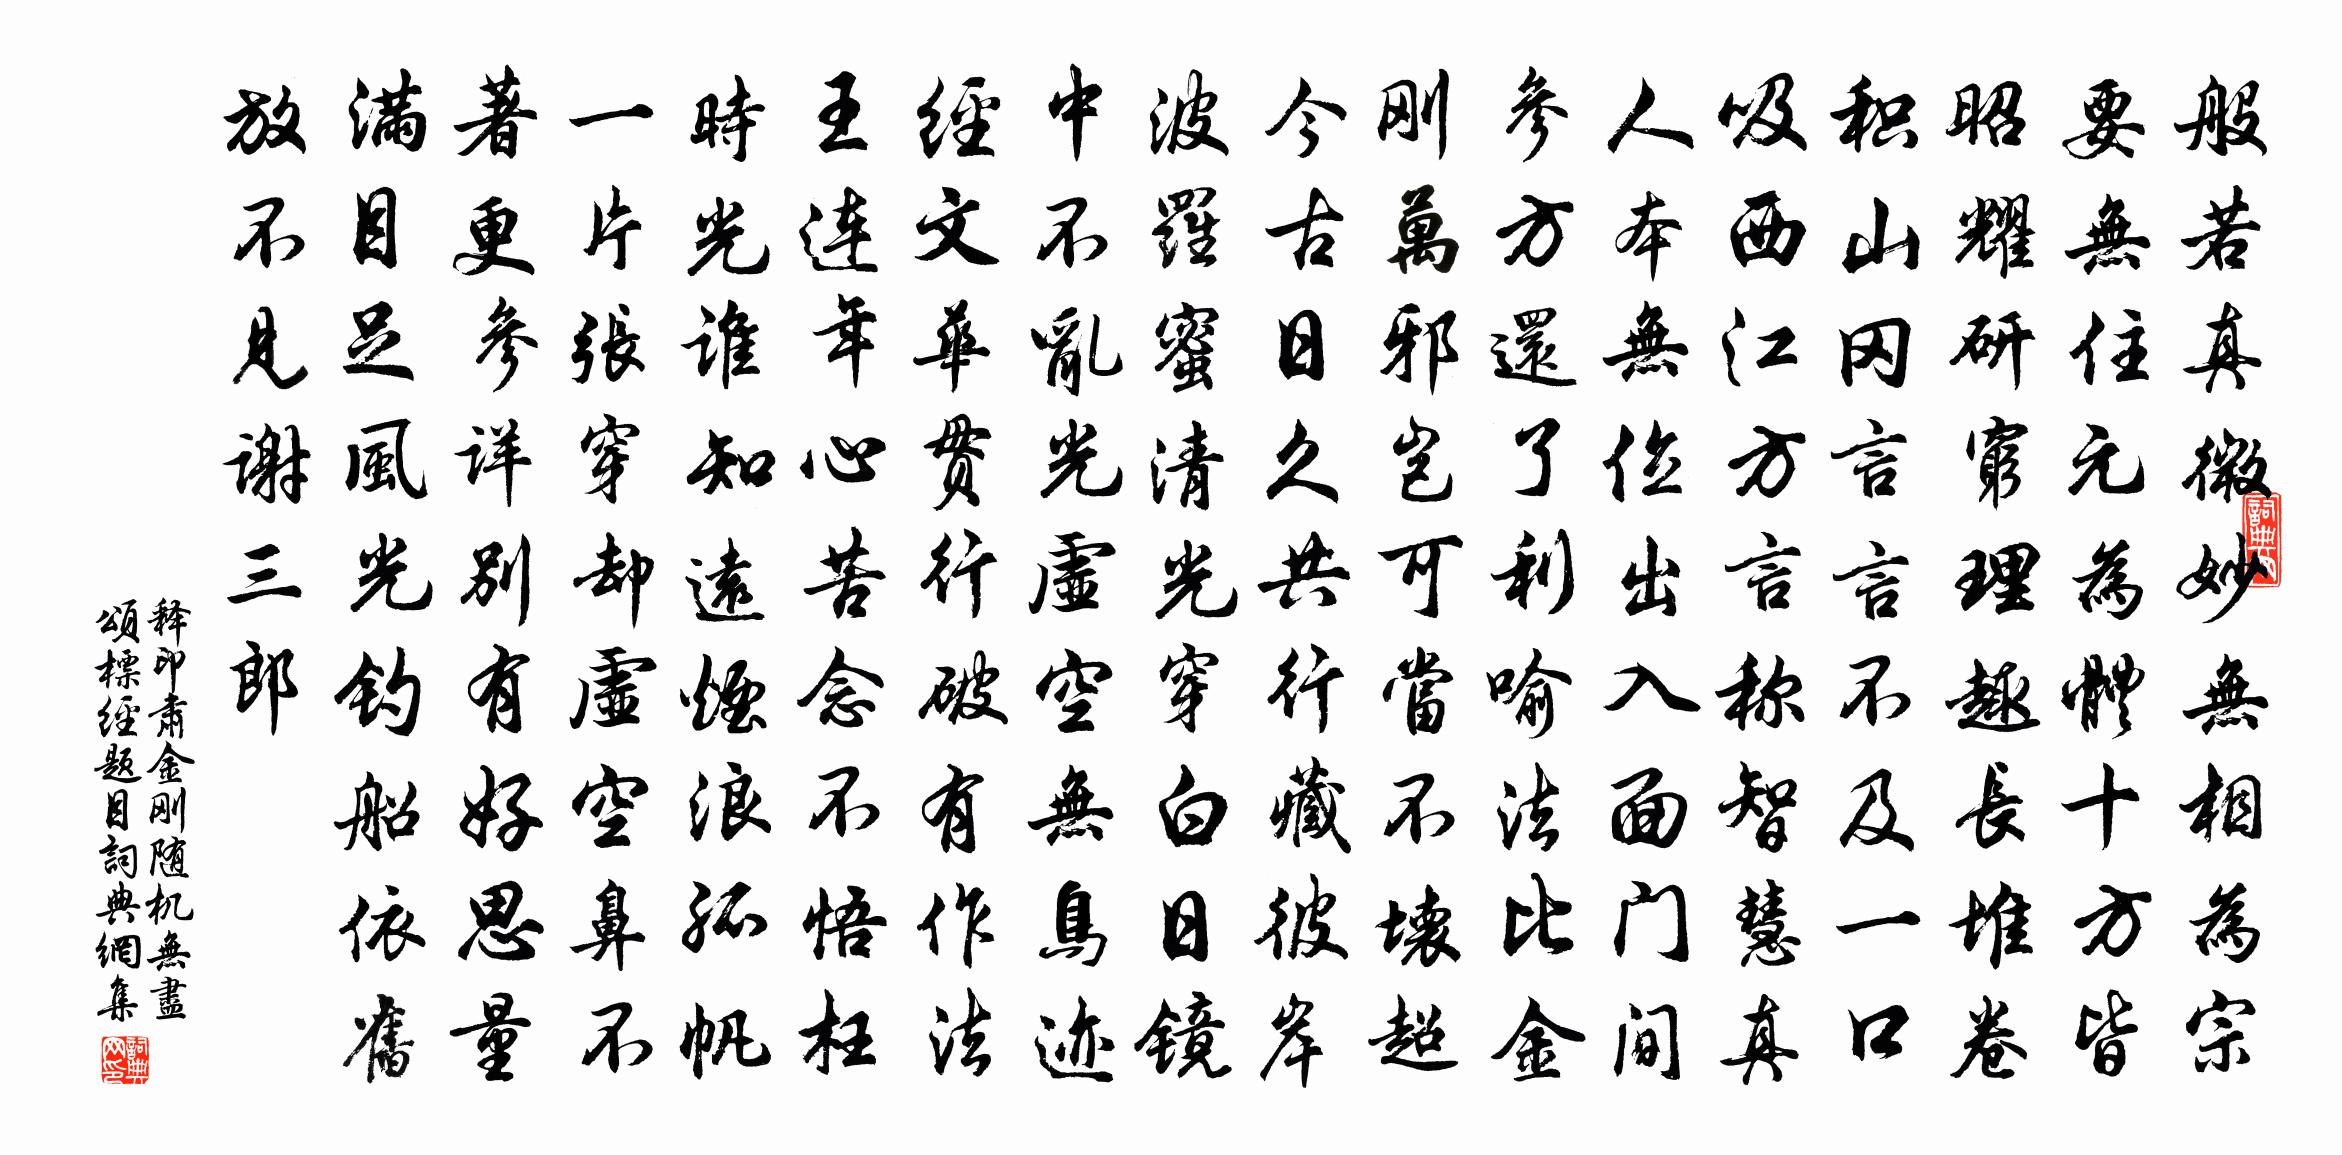 般若真微妙無相為宗
要無住元為體十方皆
昭耀研窮理趣長堆卷
积山冈言言不及一口
吸西江方言称智慧真
人本無位出入面门间
参方還了利喻法比金
刚萬邪岂可當不壊超
今古日久共行藏彼岸
波羅蜜清光穿白日镜
中不亂光虛空無鳥迹
經文華贯行破有作法
王連年心苦念不悟枉
時光谁知遠煙浪孤帆
一片張穿却虛空鼻不
著更参详别有好思量
滿目足風光钓船依舊
放不見谢三郎
释印肃金刚随机無盡
頌標經题目詞典網集
詞典
詞典網印